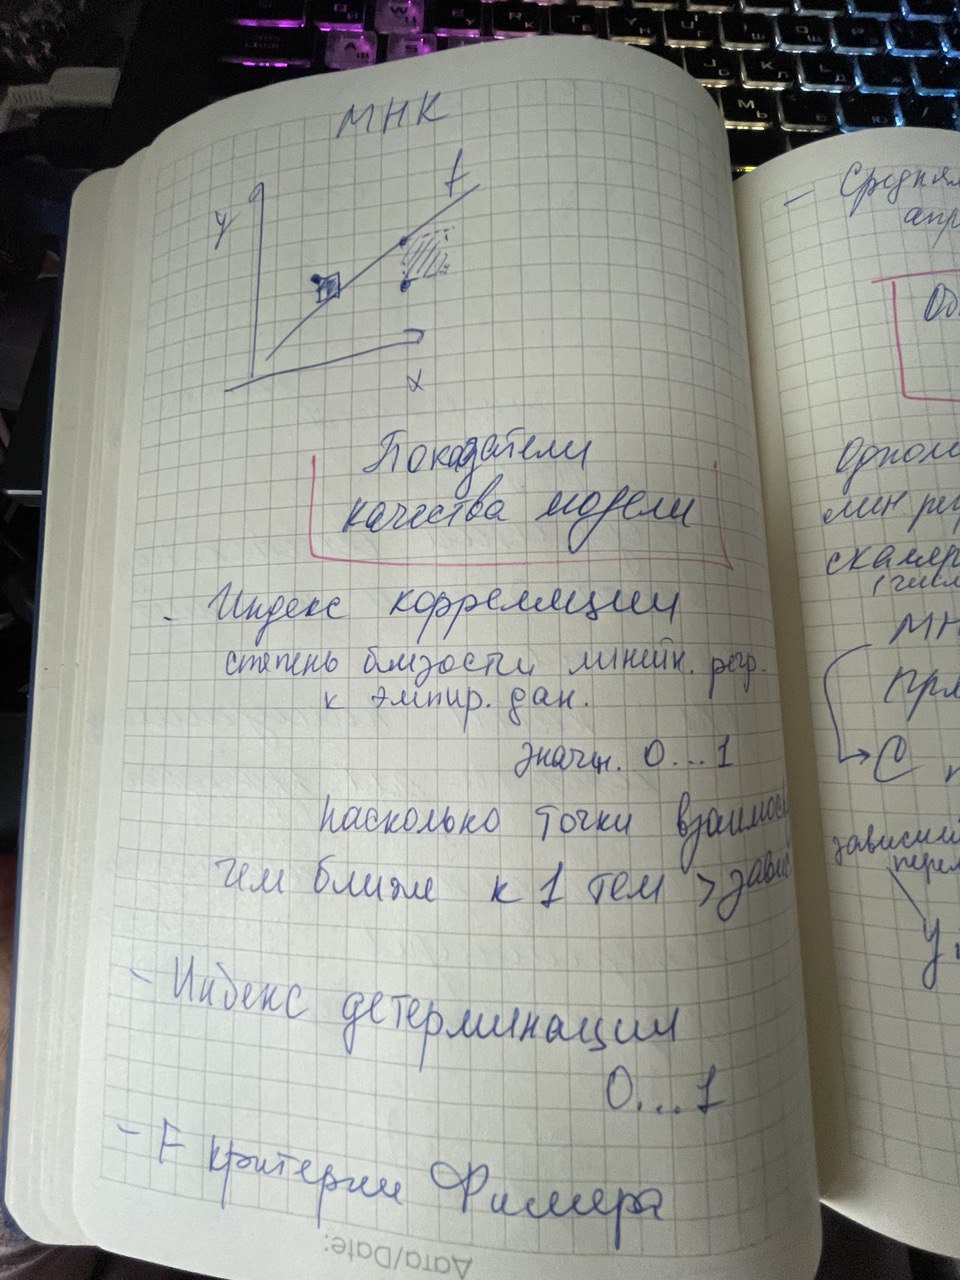 МНК
f
y
x
Показатели
качества модели
- Индекс корреляции
степень близости линейн. регр.
к эмпир. дан.
значен. 0...1
насколько точки взаимос
чем ближе к 1 тем > завис
- Индекс детерминации
0...1
- F критерии Фишера
Дата/Date:
- Средняя
апр
Од
Одном
лин рег
скаляр
(числ
МН
Пря
С
зависим
перем
y